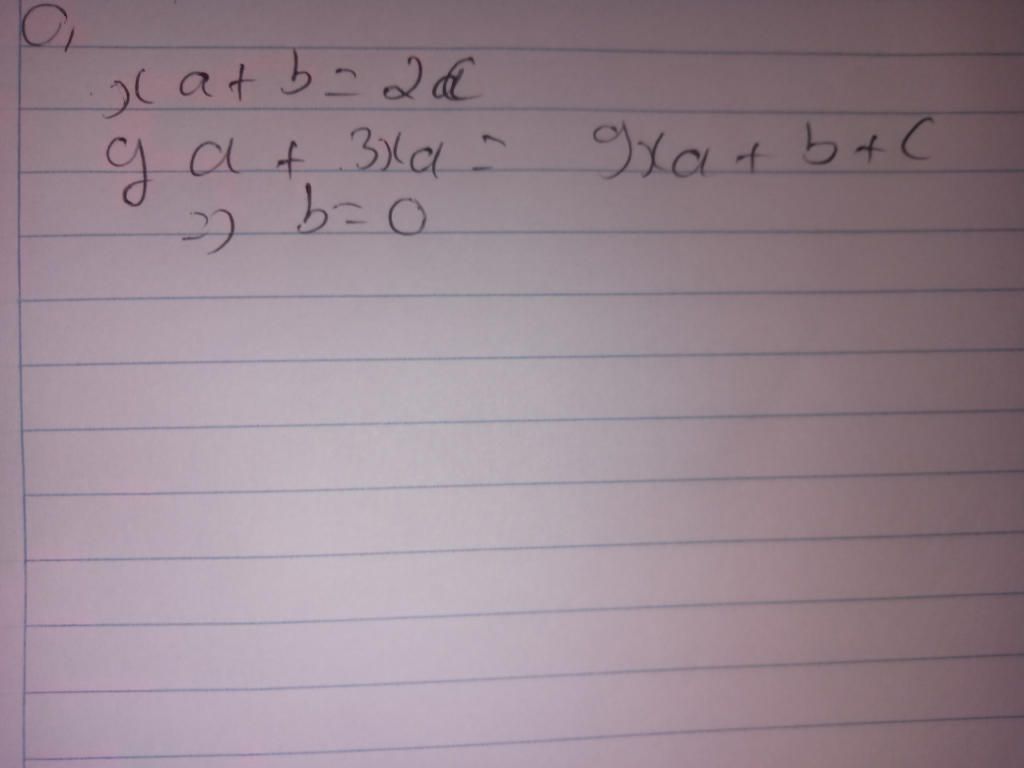 0,
xa + b = 2
ya + 3xa = 9xa + b + c
=> b = 0